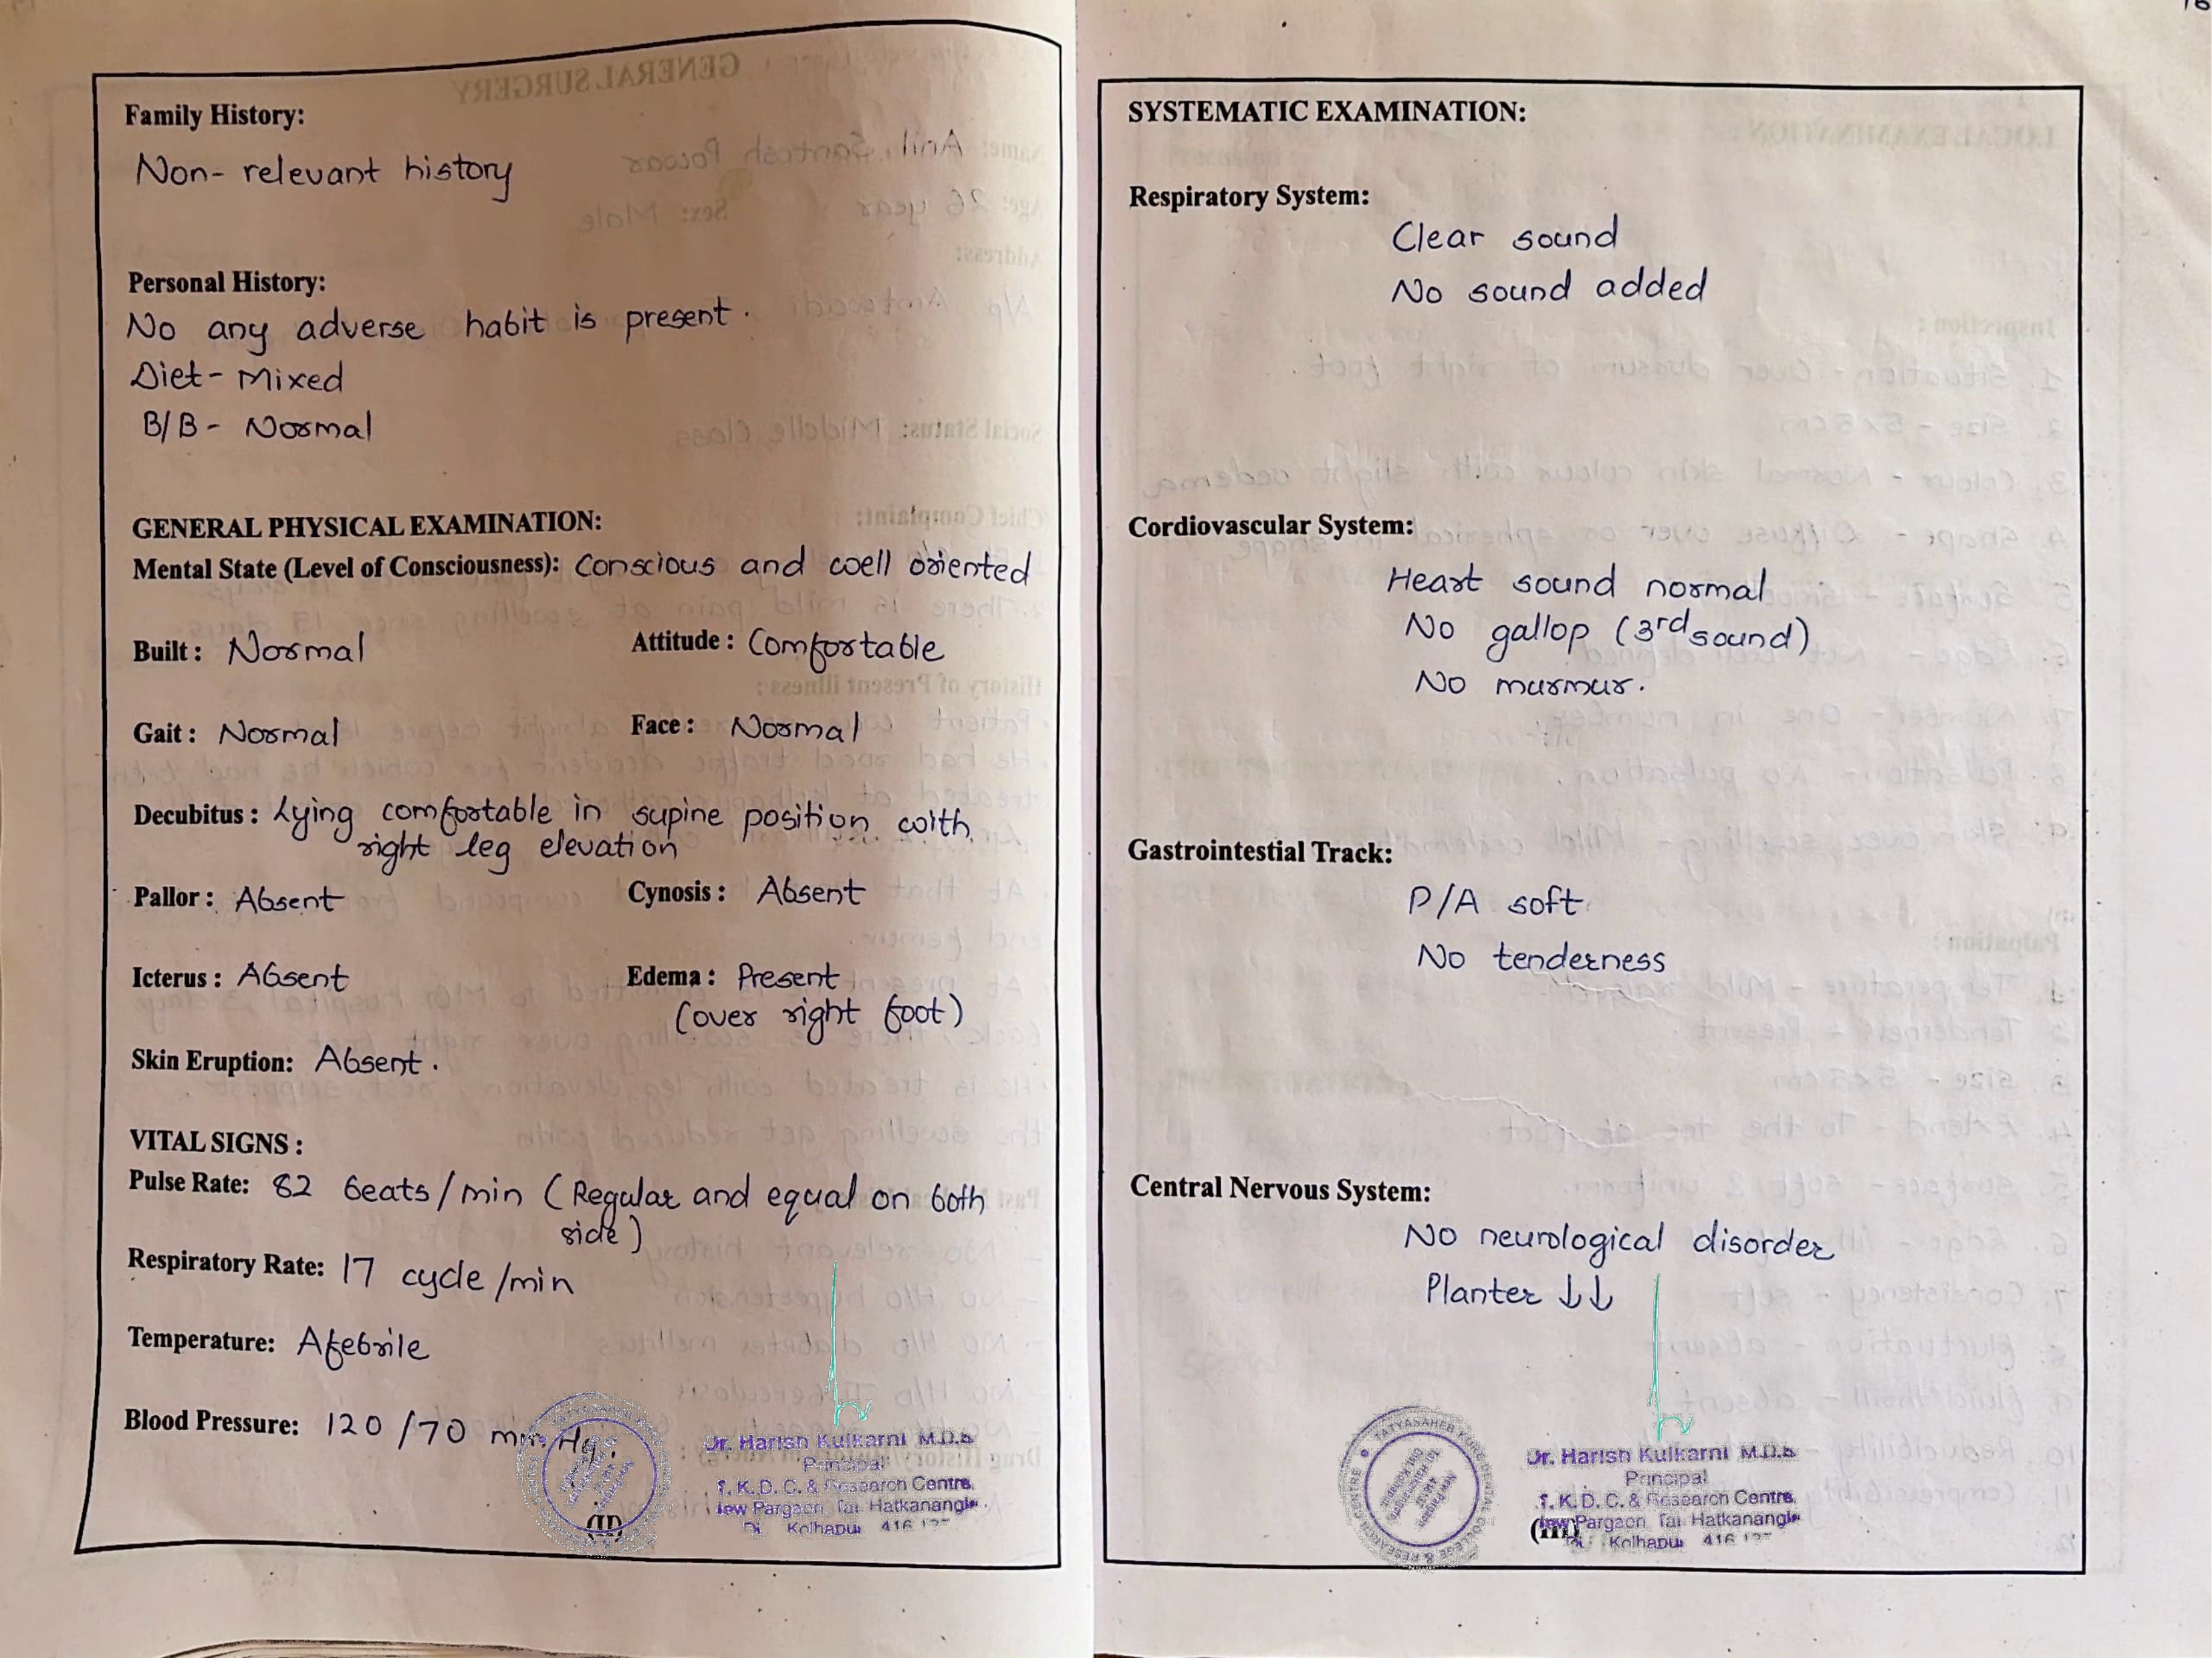 Family History:
Non-relevant history
Personal History:
No any adverse habit is present.
Diet- Mixed
B/B- Normal
GENERAL PHYSICAL EXAMINATION:
Mental State (Level of Consciousness): Conscious and well oriented
Built: Normal Attitude: Comfortable
Gait: Normal Face: Normal
Decubitus: Lying comfortable in supine position with
right leg elevation
Pallor: Absent Cynosis: Absent
Icterus: Absent Edema: Present
(over right foot)
Skin Eruption: Absent.
VITAL SIGNS:
Pulse Rate: 82 beats/min (Regular and equal on both
side)
Respiratory Rate: 17 cycle/min
Temperature: Afebrile
Blood Pressure: 120/70 mm/Hg.
Dr. Harish Kulkarni M.D.S
Principal
T. K. D. C. & Research Centre,
New Pargaon, Tal. Hatkanangle
Kolhapur 416
(II)
SYSTEMATIC EXAMINATION:
Respiratory System:
Clear sound
No sound added
Cordiovascular System:
Heart sound normal
No gallop (3rd sound)
No murmur.
Gastrointestial Track:
P/A soft
No tenderness
Central Nervous System:
No neurological disorder
Planter ↓↓
TATYASAHEB KORE DENTAL COLLEGE & RESEARCH CENTRE
New Pargaon
Dr. Harish Kulkarni M.D.S
Principal
T. K. D. C. & Research Centre,
New Pargaon, Tal. Hatkanangle
Kolhapur 416
(III)